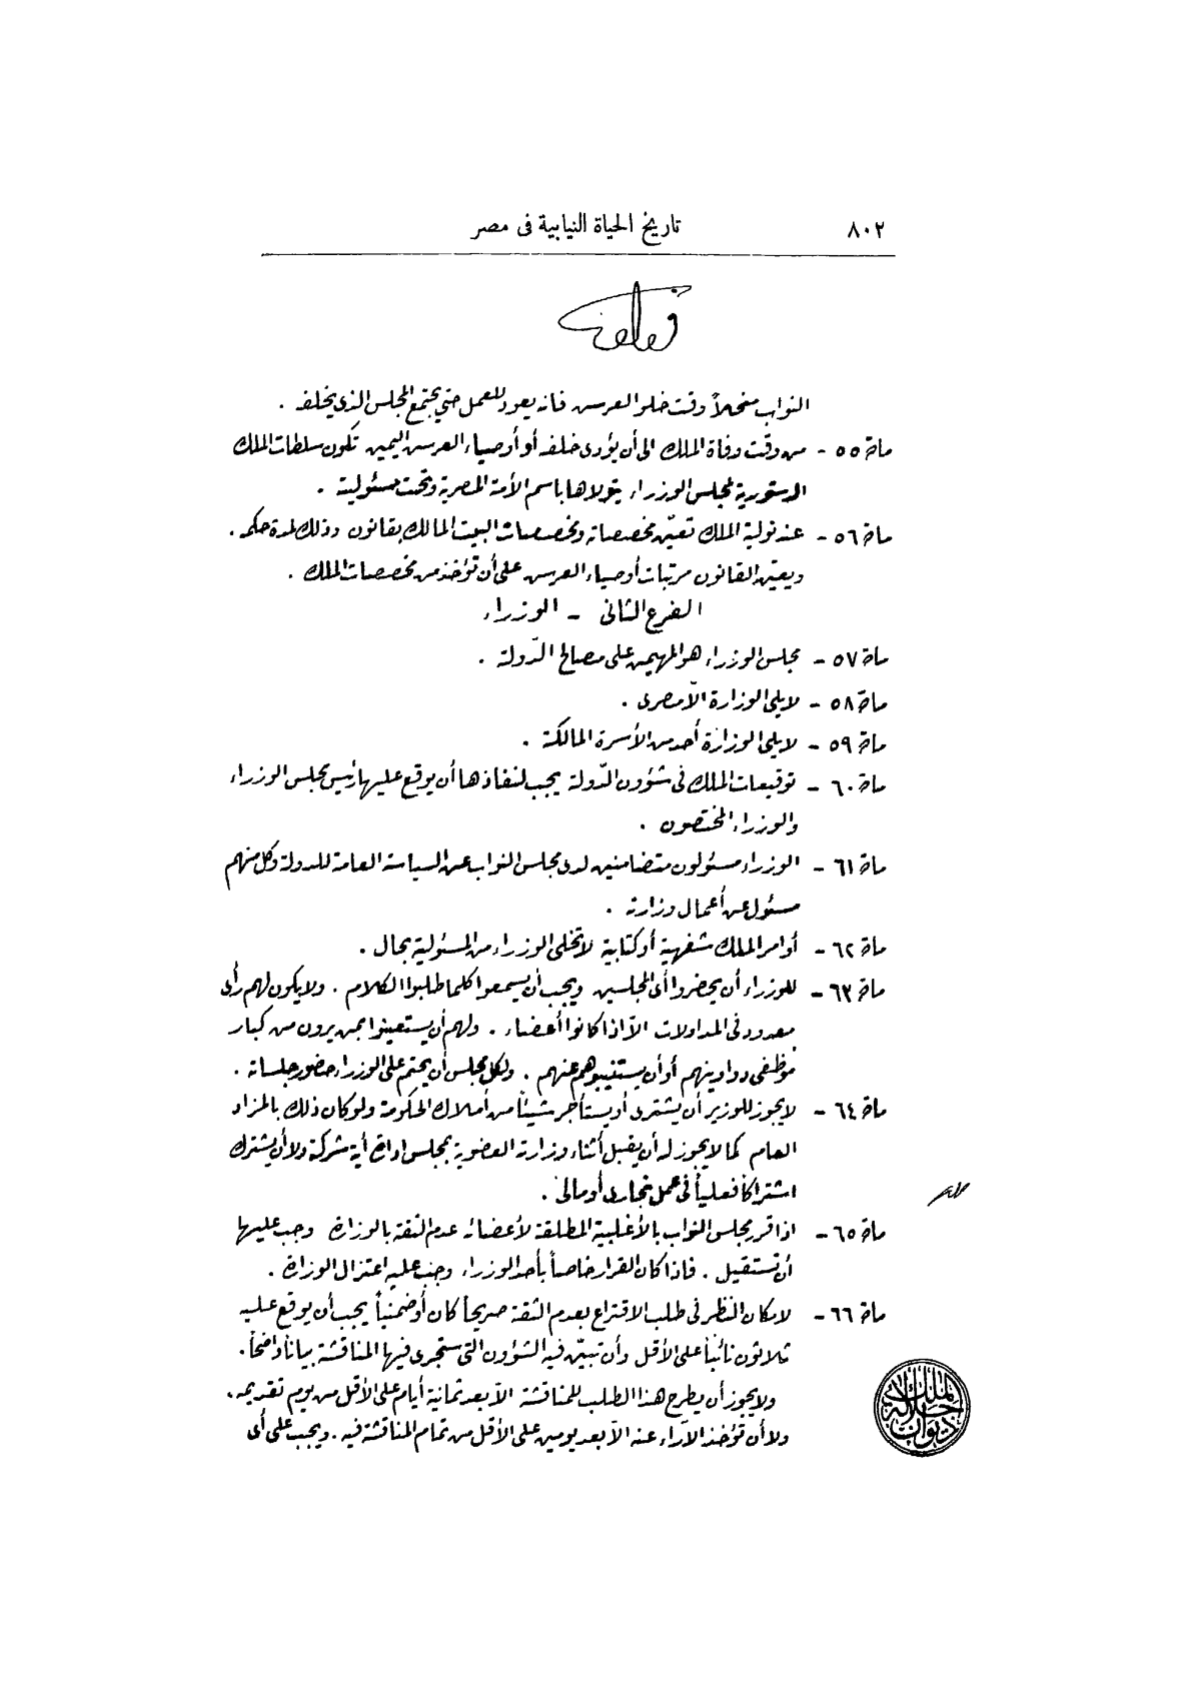 ٨٠٢
تاريخ الحياة النيابية فى مصر
النواب منحلاً وقت خلو العرش فانه يعود للعمل حتى يجتمع المجلس الذى يخلفه .
مادة ٥٥ - من وقت وفاة الملك الى أن يؤدى خلفه أو أوصياء العرش اليمين تكون سلطات الملك
الدستورية لمجلس الوزراء يتولاها باسم الأمة المصرية وتحت مسئوليته .
مادة ٥٦ - عند تولية الملك تعيّن مخصصاته ومخصصات البيت المالك بقانون وذلك لمدة حكمه .
ويعيّن القانون مرتبات أوصياء العرش على أن تؤخذ من مخصصات الملك .
الفرع الثانى - الوزراء
مادة ٥٧ - مجلس الوزراء هو المهيمن على مصالح الدّولة .
مادة ٥٨ - لا يلى الوزارة الاّ مصرى .
مادة ٥٩ - لا يلى الوزارة أحد من الأسرة المالكة .
مادة ٦٠ - توقيعات الملك فى شؤون الدّولة يجب لنفاذها أن يوقع عليها رئيس مجلس الوزراء
والوزراء المختصون .
مادة ٦١ - الوزراء مسئولون متضامنين لدى مجلس النواب عن السياسة العامة للدولة وكل منهم
مسئول عن أعمال وزارته .
مادة ٦٢ - أوامر الملك شفهية أو كتابية لا تخلى الوزراء من المسئولية بحال .
مادة ٦٣ - للوزراء أن يحضروا أى المجلسين ويجب أن يسمعوا كلما طلبوا الكلام . ولا يكون لهم رأى
معدود فى المداولات الاّ اذا كانوا أعضاء . ولهم أن يستعينوا بمن يرون من كبار
موظفى دواوينهم أو أن يستنيبوهم عنهم . ولكل مجلس أن يحتم على الوزراء حضور جلساته .
مادة ٦٤ - لا يجوز للوزير أن يشترى أو يستأجر شيئاً من أملاك الحكومة ولو كان ذلك بالمزاد
العام كما لا يجوز له أن يقبل أثناء وزارته العضوية بمجلس ادارة أية شركة ولا أن يشترك
اشتراكاً فعلياً فى عمل تجارى أو مالى .
مادة ٦٥ - اذا قرر مجلس النواب بالأغلبية المطلقة لأعضائه عدم الثقة بالوزارة وجب عليها
أن تستقيل . فاذا كان القرار خاصاً بأحد الوزراء وجب عليه اعتزال الوزارة .
مادة ٦٦ - لامكان النظر فى طلب الاقتراع بعدم الثقة صريحاً كان أو ضمنياً يجب أن يوقع عليه
ثلاثون نائباً على الأقل وأن تبيّن فيه الشؤون التى ستجرى فيها المناقشة بياناً واضحاً .
ولا يجوز أن يطرح هذا الطلب للمناقشة الاّ بعد ثمانية أيام على الأقل من يوم تقديمه .
ولا أن تؤخذ الآراء عنه الاّ بعد يومين على الأقل من تمام المناقشة فيه . ويجب على أى
ديوان جلالة الملك